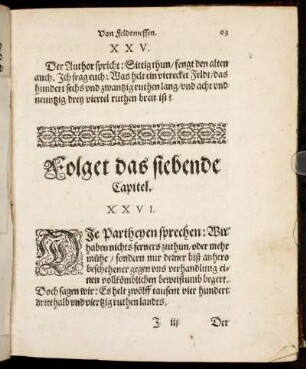 Von Feldmessen. 63
XXV.
Der Author spricht: Sittig thun/ fengt den alten
auch. Ich frag euch: Was helt ein vierecket Feldt/ das
hundert sechs vnd zwantzig ruthen lang/ vnd acht vnd
neuntzig drey viertel ruthen breit ist?
Folget das siebende
Capitel.
XXVI.
DIe Partheyen sprechen: Wir
haben nichts ferners zuthun/ oder mehr
mühe/ sondern nur deiner biß anhero
beschehener gegen vns verhandlung ei-
nen vollkömblichen beweisiumb begert.
Doch sagen wir: Es helt zwölff tausent vier hundert
dritthalb vnd viertzig ruthen landes.
I iij Der